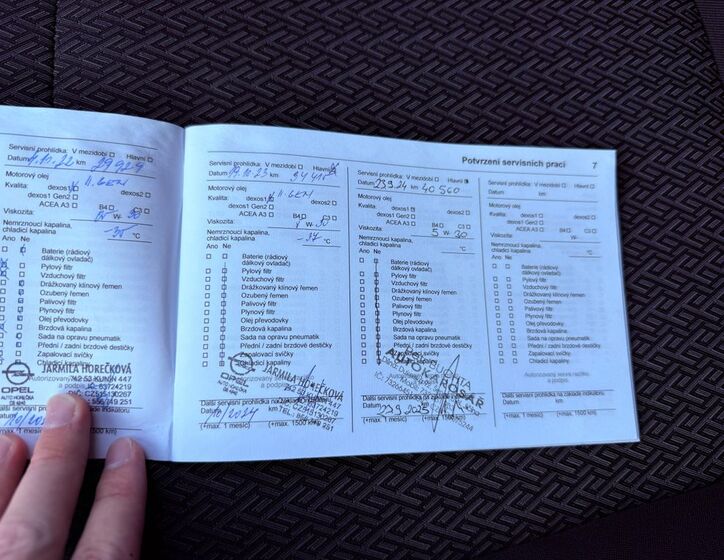 Potvrzení servisních prací 7
V mezidobí Hlavní
Datum 1.11.22 km 29929
Motorový olej
Kvalita: dexos1 II.GEN
dexos1 Gen2 dexos2
ACEA A3 B4 C3
Viskozita: W- 30
Nemrznoucí kapalina,
chladicí kapalina -35 °C
Ano Ne
Baterie (rádiový
dálkový ovladač)
Pylový filtr
Vzduchový filtr
Drážkovaný klínový řemen
Ozubený řemen
Palivový filtr
Plynový filtr
Olej převodovky
Brzdová kapalina
Sada na opravu pneumatik
Přední / zadní brzdové destičky
Zapalovací svíčky
Chladicí kapalina
OPEL
JARMILA HOREČKOVÁ
742 53 KUNÍN 447
Servisní prohlídka: V mezidobí Hlavní
Datum 19.10.23 km
Motorový olej
Kvalita: dexos1 II.GEN
dexos1 Gen2 dexos2
ACEA A3 B4 C3
Viskozita: W- 30
Nemrznoucí kapalina,
chladicí kapalina -37 °C
Ano Ne
Baterie (rádiový
dálkový ovladač)
Pylový filtr
Vzduchový filtr
Drážkovaný klínový řemen
Ozubený řemen
Palivový filtr
Plynový filtr
Olej převodovky
Brzdová kapalina
Sada na opravu pneumatik
Přední / zadní brzdové destičky
Zapalovací svíčky
Chladicí kapalina
OPEL
JARMILA HOREČKOVÁ
Datum 10/2024 km
(+max. 1 měsíc) (+max. 1500 km)
Servisní prohlídka: V mezidobí Hlavní
Datum 23.9.24 km 40500
Motorový olej
Kvalita: dexos1
dexos1 Gen2 dexos2
ACEA A3 B4 C3
Viskozita: 5 W- 30
Nemrznoucí kapalina,
chladicí kapalina °C
Ano Ne
Baterie (rádiový
dálkový ovladač)
Pylový filtr
Vzduchový filtr
Drážkovaný klínový řemen
Ozubený řemen
Palivový filtr
Plynový filtr
Olej převodovky
Brzdová kapalina
Sada na opravu pneumatik
Přední / zadní brzdové destičky
Zapalovací svíčky
Datum 23.9.2025 km
(+max. 1 měsíc) (+max. 1500 km)
Servisní prohlídka: V mezidobí Hlavní
Datum km
Motorový olej
Kvalita: dexos1
dexos1 Gen2 dexos2
ACEA A3 B4 C3
Viskozita: W-
Nemrznoucí kapalina,
chladicí kapalina °C
Ano Ne
Baterie (rádiový
dálkový ovladač)
Pylový filtr
Vzduchový filtr
Drážkovaný klínový řemen
Ozubený řemen
Palivový filtr
Plynový filtr
Olej převodovky
Brzdová kapalina
Sada na opravu pneumatik
Přední / zadní brzdové destičky
Zapalovací svíčky
Chladicí kapalina
Autorizovaný servis/razítko
a podpis
Další servisní prohlídka na základě indikátoru
Datum km
(+max. 1 měsíc) (+max. 1500 km)